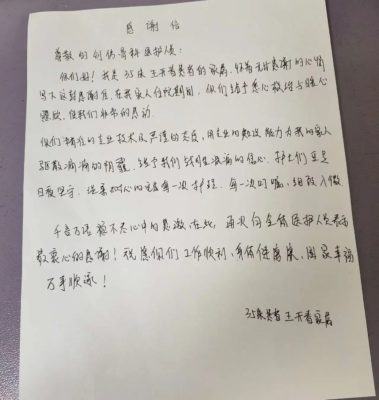 感谢信
尊敬的创伤骨科医护人员：
你们好！我是35床王天香患者的家属，怀着无比感谢的心情
写下这封感谢信。在我家人住院期间，你们给予悉心救治与暖心
照顾，使我们非常的感动。
你们精湛的专业技术及严谨的态度，用专业的能力为我的家人
驱散病痛的阴霾，给予我们战胜病痛的信心。护士们更是
日夜坚守，每一次护理、每一次叮嘱，细致入微
千言万语 不尽心中的感激，在此，再次向全体医护人员表示
最衷心的感谢！祝愿你们工作顺利，身体健康，阖家幸福
万事顺遂！
35床患者王天香家属